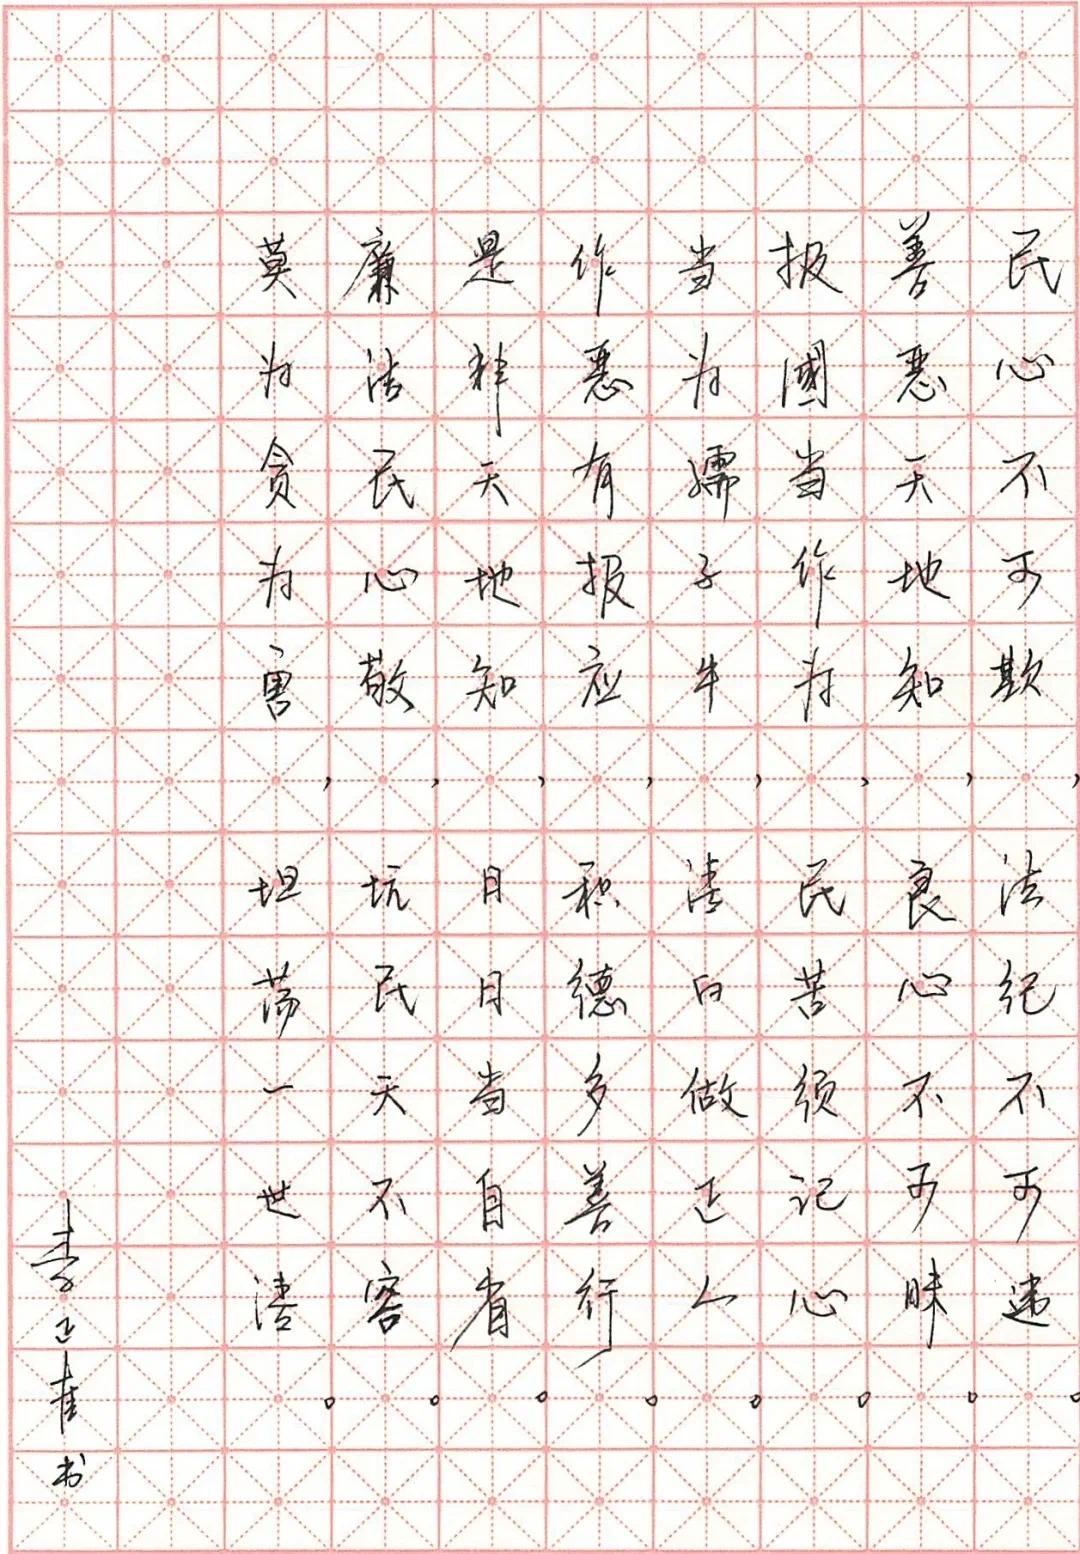 民心不可欺,法纪不可违。
善恶天地知,良心不可昧。
报國当作为,民苦须记心。
当为孺子牛,清白做正人。
作恶有报应,积德多善行。
是非天地知,日日当自省。
廉洁民心敬,坑民天不容。
莫为贪为害,坦荡一世清。
李正书